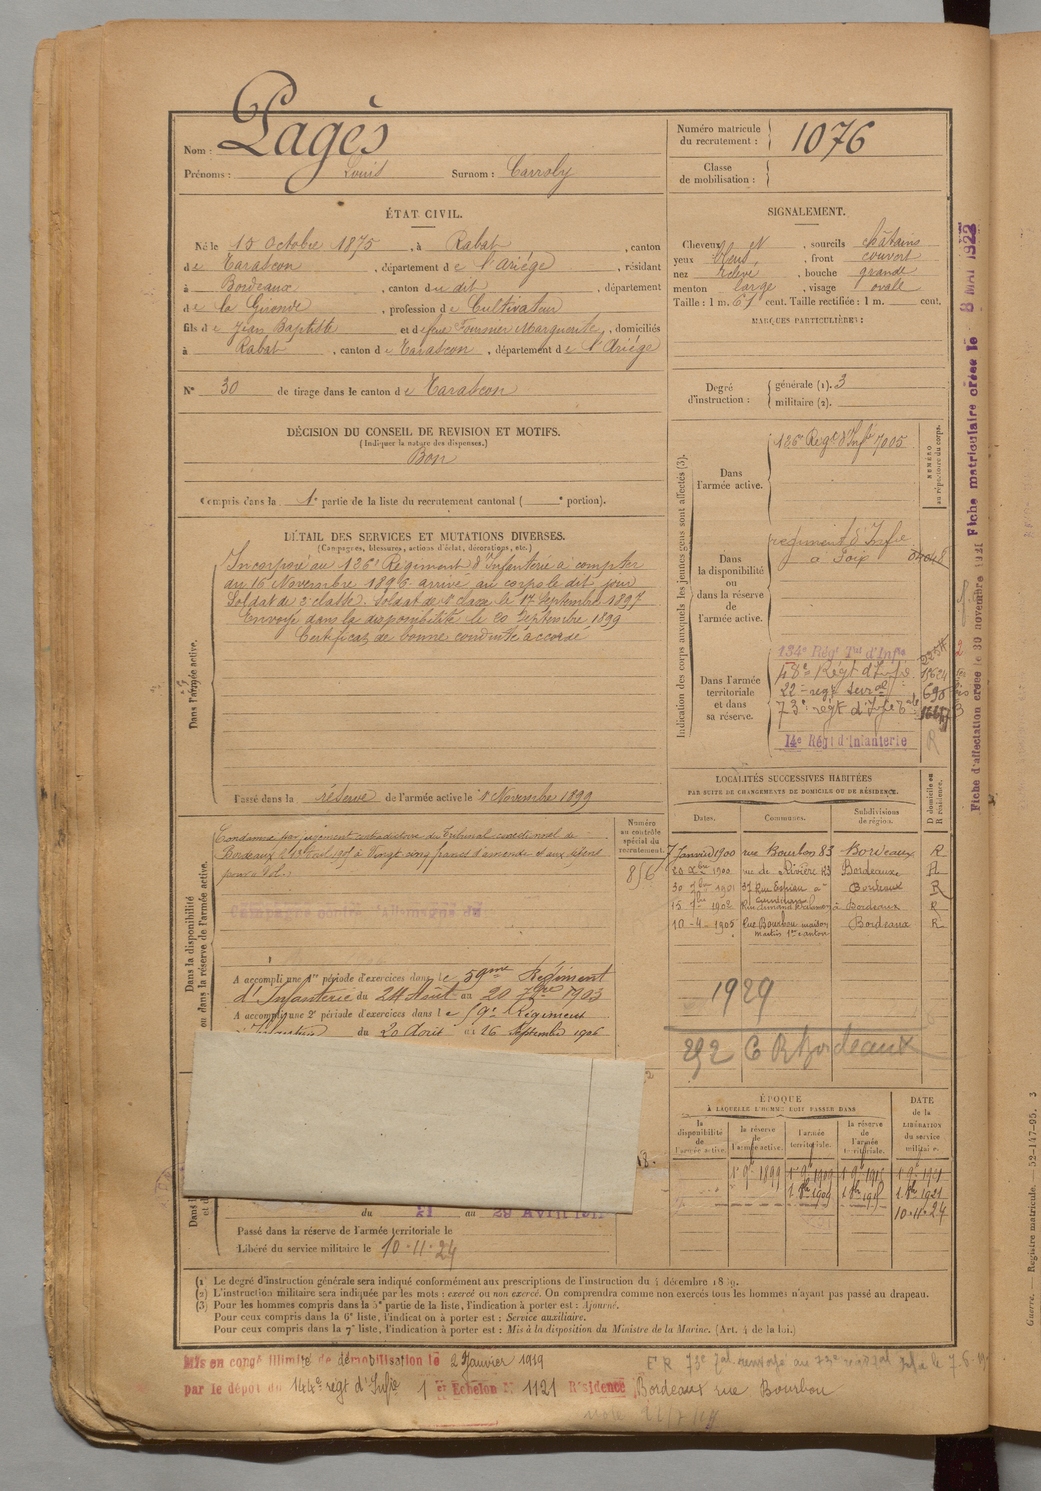 Nom : Pagès
Prénoms : Louis Surnom : Carroly
Numéro matricule du recrutement : 1076
Classe de mobilisation :
ÉTAT CIVIL.
Né le 15 Octobre 1875, à Rabat, canton
de Tarascon, département de l'Ariège, résidant
à Bordeaux, canton du dit, département
de la Gironde, profession de Cultivateur
fils de Jean Baptiste et de feue Fournier Marguerite, domiciliés
à Rabat, canton de Tarascon, département de l'Ariège
N° 30 de tirage dans le canton de Tarascon
SIGNALEMENT.
Cheveux et, sourcils châtains
yeux bleus, front couvert
nez relevé, bouche grande
menton large, visage ovale
Taille : 1 m. 61 cent. Taille rectifiée : 1 m. cent.
MARQUES PARTICULIÈRES :
Degré d'instruction : générale (1). 3
militaire (2).
DÉCISION DU CONSEIL DE REVISION ET MOTIFS.
(Indiquer la nature des dispenses.)
Bon
Compris dans la 1e partie de la liste du recrutement cantonal ( e portion).
DÉTAIL DES SERVICES ET MUTATIONS DIVERSES.
(Campagnes, blessures, actions d'éclat, décorations, etc.)
Dans l'armée active.
Incorporé au 126e Régiment d'Infanterie à compter
du 16 Novembre 1896. arrivé au corps le dit jour
Soldat de 2e classe. Soldat de 1e classe le 17 Septembre 1897
Envoyé dans la disponibilité le 20 Septembre 1899
Certificat de bonne conduite accordé
Passé dans la réserve de l'armée active le 1er Novembre 1899
Indication des corps auxquels les jeunes gens sont affectés (3).
NUMÉRO au répertoire du corps.
Dans l'armée active.
126e Régt d'Infie 7005
Dans la disponibilité ou dans la réserve de l'armée active.
régiment d'Infie
à Foix
Dans l'armée territoriale et dans sa réserve.
134e Régt Tal d'Infie
48e Régt d'Infie
22e regt
73e régt d'Infie
14e Régt d'Infanterie
Fiche d'affectation créée le 30 novembre 1921 Fiche matriculaire créée le 8 MAI 1922
LOCALITÉS SUCCESSIVES HABITÉES
PAR SUITE DE CHANGEMENTS DE DOMICILE OU DE RÉSIDENCE.
Dates. Communes. Subdivisions de région. D domicile ou R résidence.
7 Janvier 1900 rue Bourbon 83 Bordeaux R
20 Xbre 1900 rue de Rivière 83 Bordeaux R
30 7bre 1901 37 Rue Espiau à Bordeaux R
15 1902 à Bordeaux R
10-4-1905 Rue Bourbon maison Martin 1er canton Bordeaux R
1929
292 C R Bordeaux
Dans la disponibilité ou dans la réserve de l'armée active.
Numéro au contrôle spécial du recrutement.
856
Condamné par jugement contradictoire du Tribunal correctionnel de
Bordeaux à Vingt cinq francs d'amende et aux dépens
pour « Vol »
Campagne contre l'Allemagne du
A accompli une 1re période d'exercices dans le 59me Régiment
d'Infanterie du 24 Août au 20 7bre 1903
A accompli une 2e période d'exercices dans le 59e Régiment
d'Infanterie du 20 Août au 16 Septembre 1906
ÉPOQUE
À LAQUELLE L'HOMME DOIT PASSER DANS
la disponibilité de l'armée active. la réserve de l'armée active. l'armée territoriale. la réserve de l'armée territoriale. DATE de la LIBÉRATION du service militaire.
1er 9bre 1899 1er 9bre 1909
1 8bre 1909 1 8bre 1915 1 8bre 1921
10.11.24
du 21 au 29 AVRIL
Passé dans la réserve de l'armée territoriale le
Libéré du service militaire le 10.11.24
(1) Le degré d'instruction générale sera indiqué conformément aux prescriptions de l'instruction du 4 décembre 1889.
(2) L'instruction militaire sera indiquée par les mots : exercé ou non exercé. On comprendra comme non exercés tous les hommes n'ayant pas passé au drapeau.
(3) Pour les hommes compris dans la 5e partie de la liste, l'indication à porter est : Ajourné.
Pour ceux compris dans la 6e liste, l'indication à porter est : Service auxiliaire.
Pour ceux compris dans la 7e liste, l'indication à porter est : Mis à la disposition du Ministre de la Marine. (Art. 4 de la loi.)
Mis en congé illimité de démobilisation le 2 Janvier 1919
par le dépôt du 144e régt d'Infie 1 er Echelon N° 1121 Résidence Bordeaux rue Bourbon
Guerre. — Registre matricule. — 52-147-95. 3